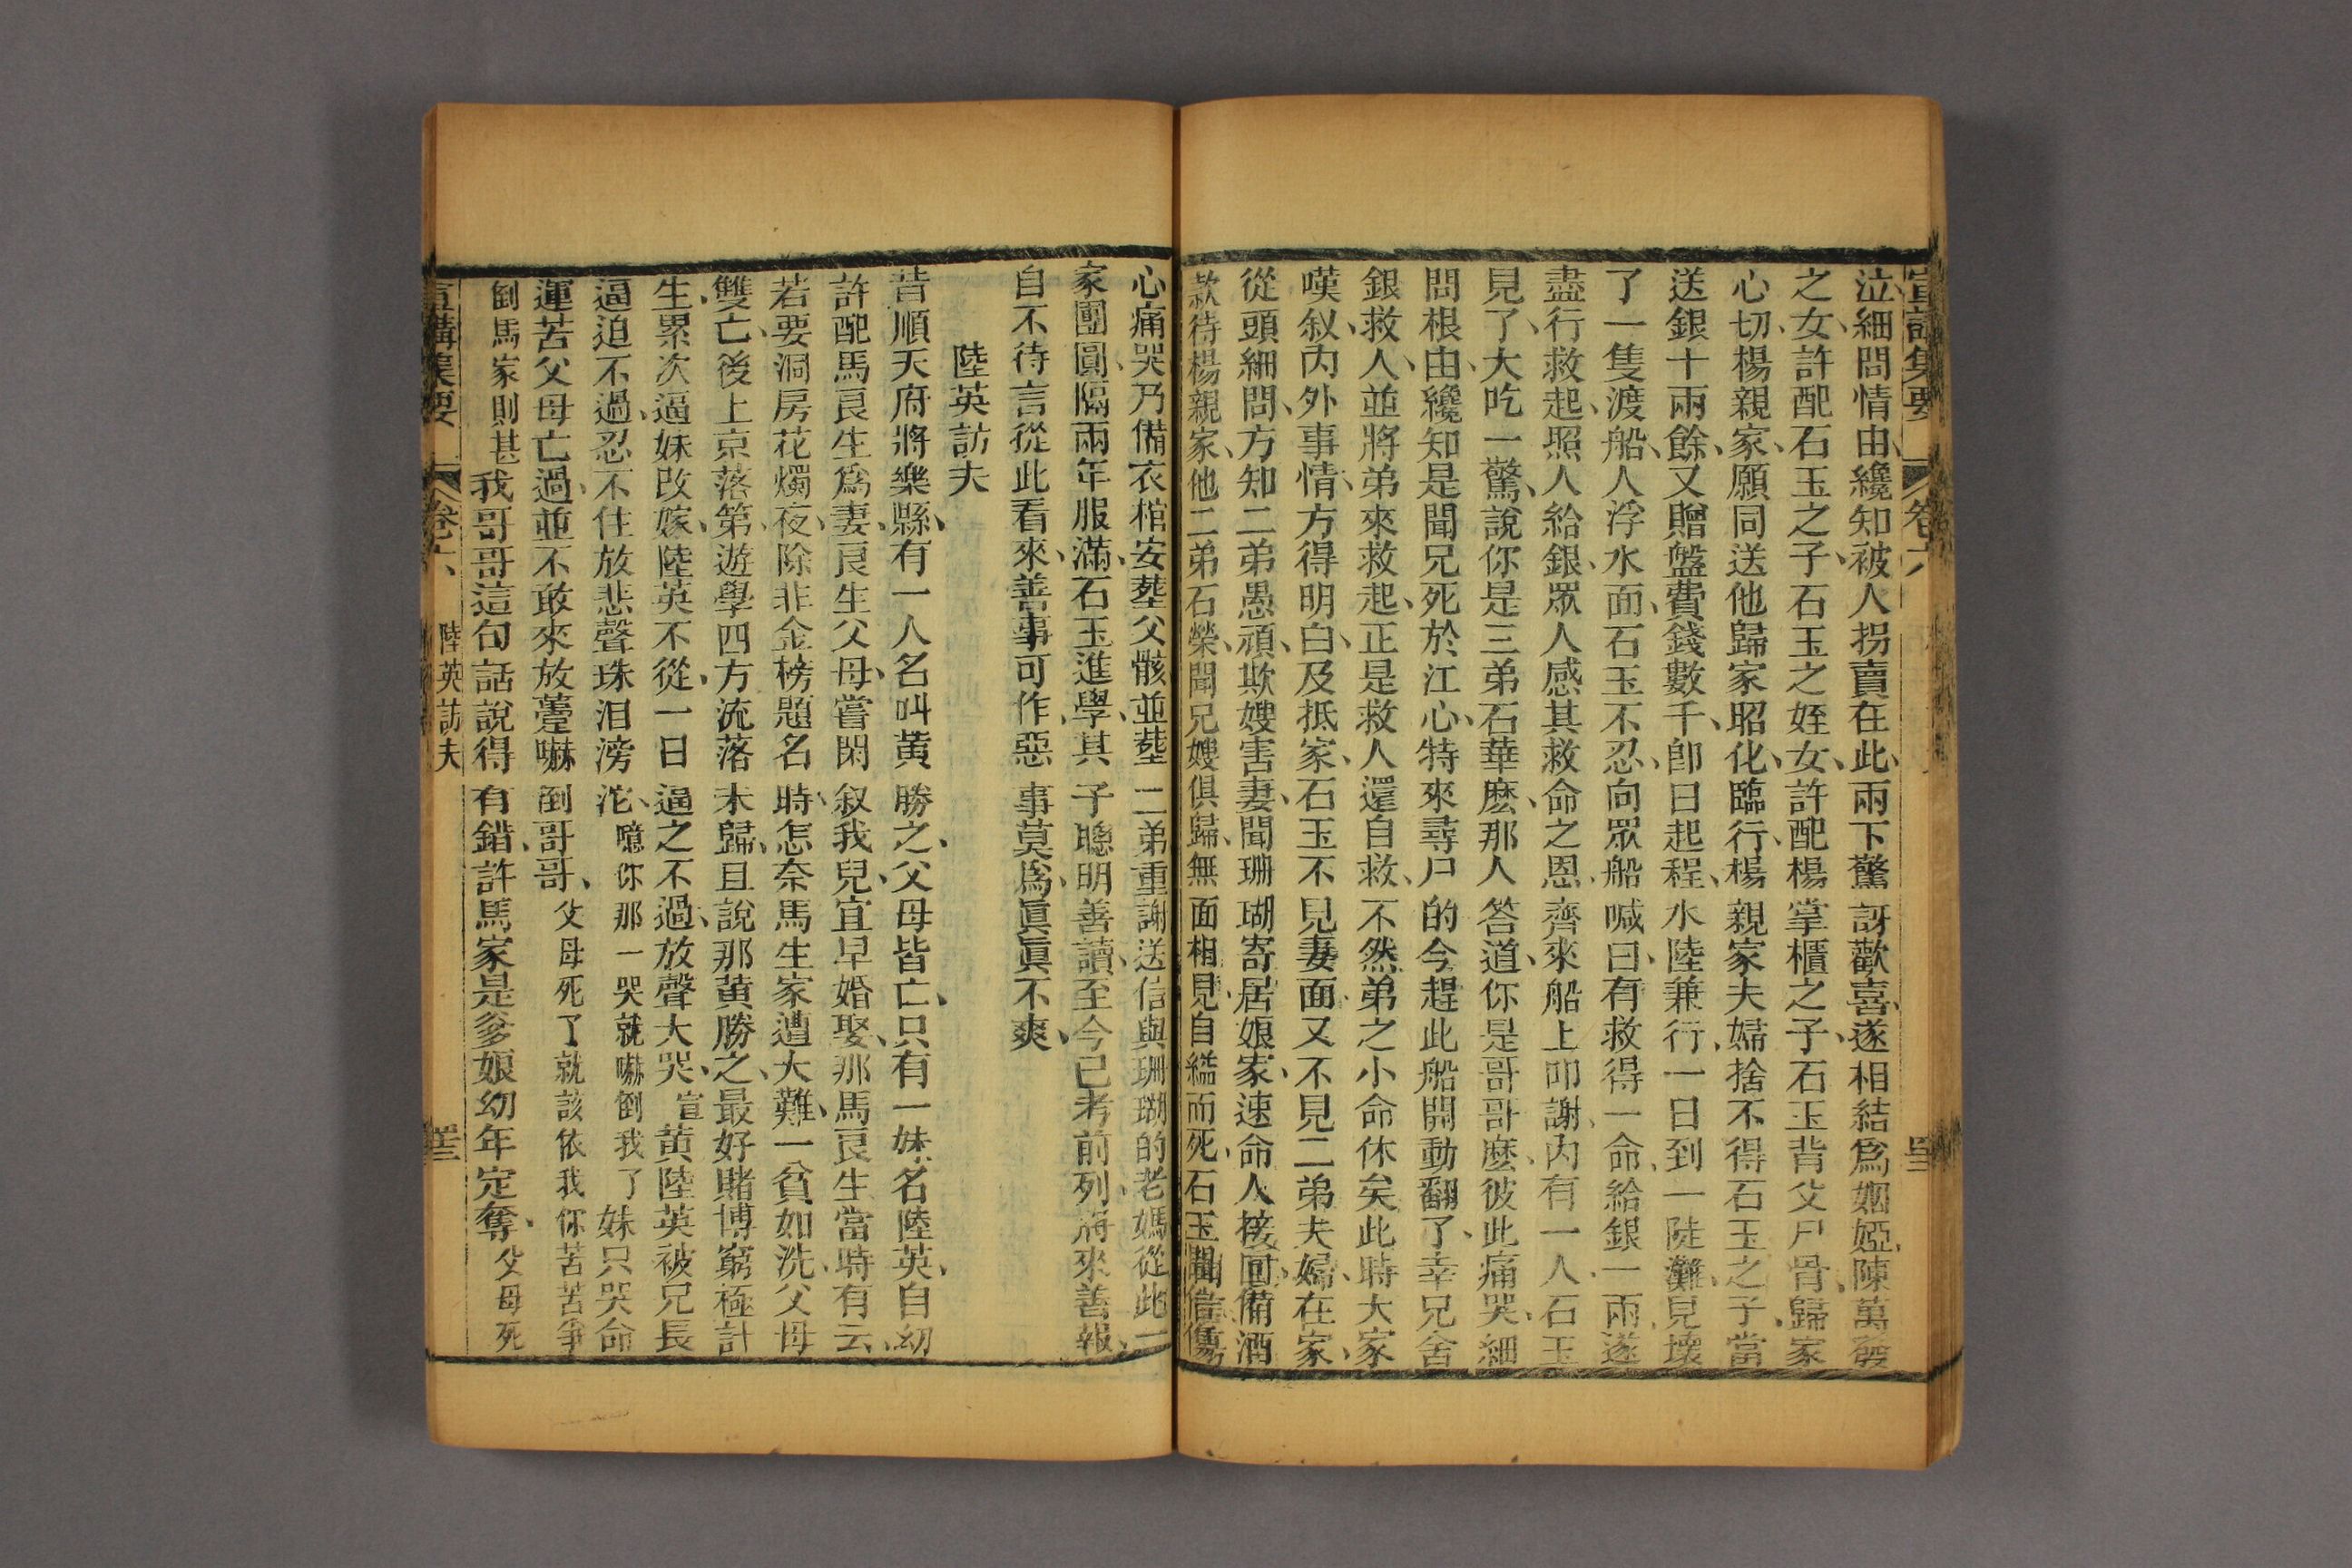 宣講集要 卷六
泣、細問情由、纔知被人拐賣在此、兩下驚訝歡喜、遂相結爲姻婭、陳萬發
之女、許配石玉之子、石玉之姪女、許配楊掌櫃之子、石玉背父尸骨、歸家
心切、楊親家、願同送他歸家昭化、臨行、楊親家夫婦捨不得石玉之子、當
送銀十兩餘、又贈盤費錢數千、卽日起程、水陸兼行、一日到一陡灘、見壞
了一隻渡船、人浮水面、石玉不忍、向眾船喊曰、有救得一命、給銀一兩、遂
盡行救起、照人給銀、眾人感其救命之恩、齊來船上叩謝、內有一人、石玉
見了、大吃一驚、說你是三弟石華麽、那人答道、你是哥哥麽、彼此痛哭、細
問根由、纔知是聞兄死於江心、特來尋尸的、今趕此船開動翻了、幸兄舍
銀救人、並將弟來救起、正是救人還自救、不然弟之小命休矣、此時大家
嘆叙、內外事情、方得明白、及抵家、石玉不見妻面、又不見二弟夫婦、在家、
從頭細問、方知二弟愚頑、欺嫂害妻、聞珊瑚寄居娘家、速命人接回、備酒
款待楊親家、他二弟石榮、聞兄嫂俱歸、無面相見、自縊而死、石玉聞信傷
心痛哭、乃備衣棺安塟父骸、並塟二弟、重謝送信與珊瑚的老媽、從此一
家團圓、隔兩年服滿、石玉進學、其子聰明善讀、至今已考前列、將來善報、
自不待言、從此看來、善事可作、惡事莫爲、眞眞不爽、
陸英訪夫
昔順天府將樂縣、有一人名叫黃勝之、父母皆亡、只有一妹、名陸英、自幼
許配馬良生爲妻、良生父母、嘗閑叙我兒、宜早婚娶、那馬良生當時有云、
若要洞房花燭夜、除非金榜題名時、怎奈馬生家遭大難、一貧如洗、父母
雙亡、後上京落第、遊學四方流落未歸、且說那黃勝之、最好賭博、窮極計
生、累次逼妹改嫁、陸英不從、一日逼之不過、放聲大哭、宣黃陸英被兄長
逼迫不過、忍不住放悲聲珠泪滂沱、噫你那一哭就嚇倒我了妹只哭命
運苦父母亡過、並不敢來放薹嚇倒哥哥、父母死了就該依我你苦苦爭
倒馬家則甚我哥哥這句話說得有錯、許馬家是爹娘幼年定奪、父母死
宣講集要 卷六 陸英訪夫